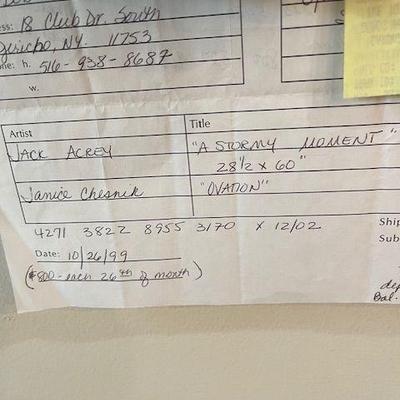 ss: 18 Club Dr. South
Jericho, NY. 11753
one: h. 516-938-8687
w.
Artist Title
Jack Acrey "A STORMY MOMENT"
28 1/2 x 60"
Janice Chesnik "OVATION"
4271 3822 8955 3170 x 12/02
Ship
Sub
Date: 10/26/99
($800- each 26th of month)
dep
Bal.